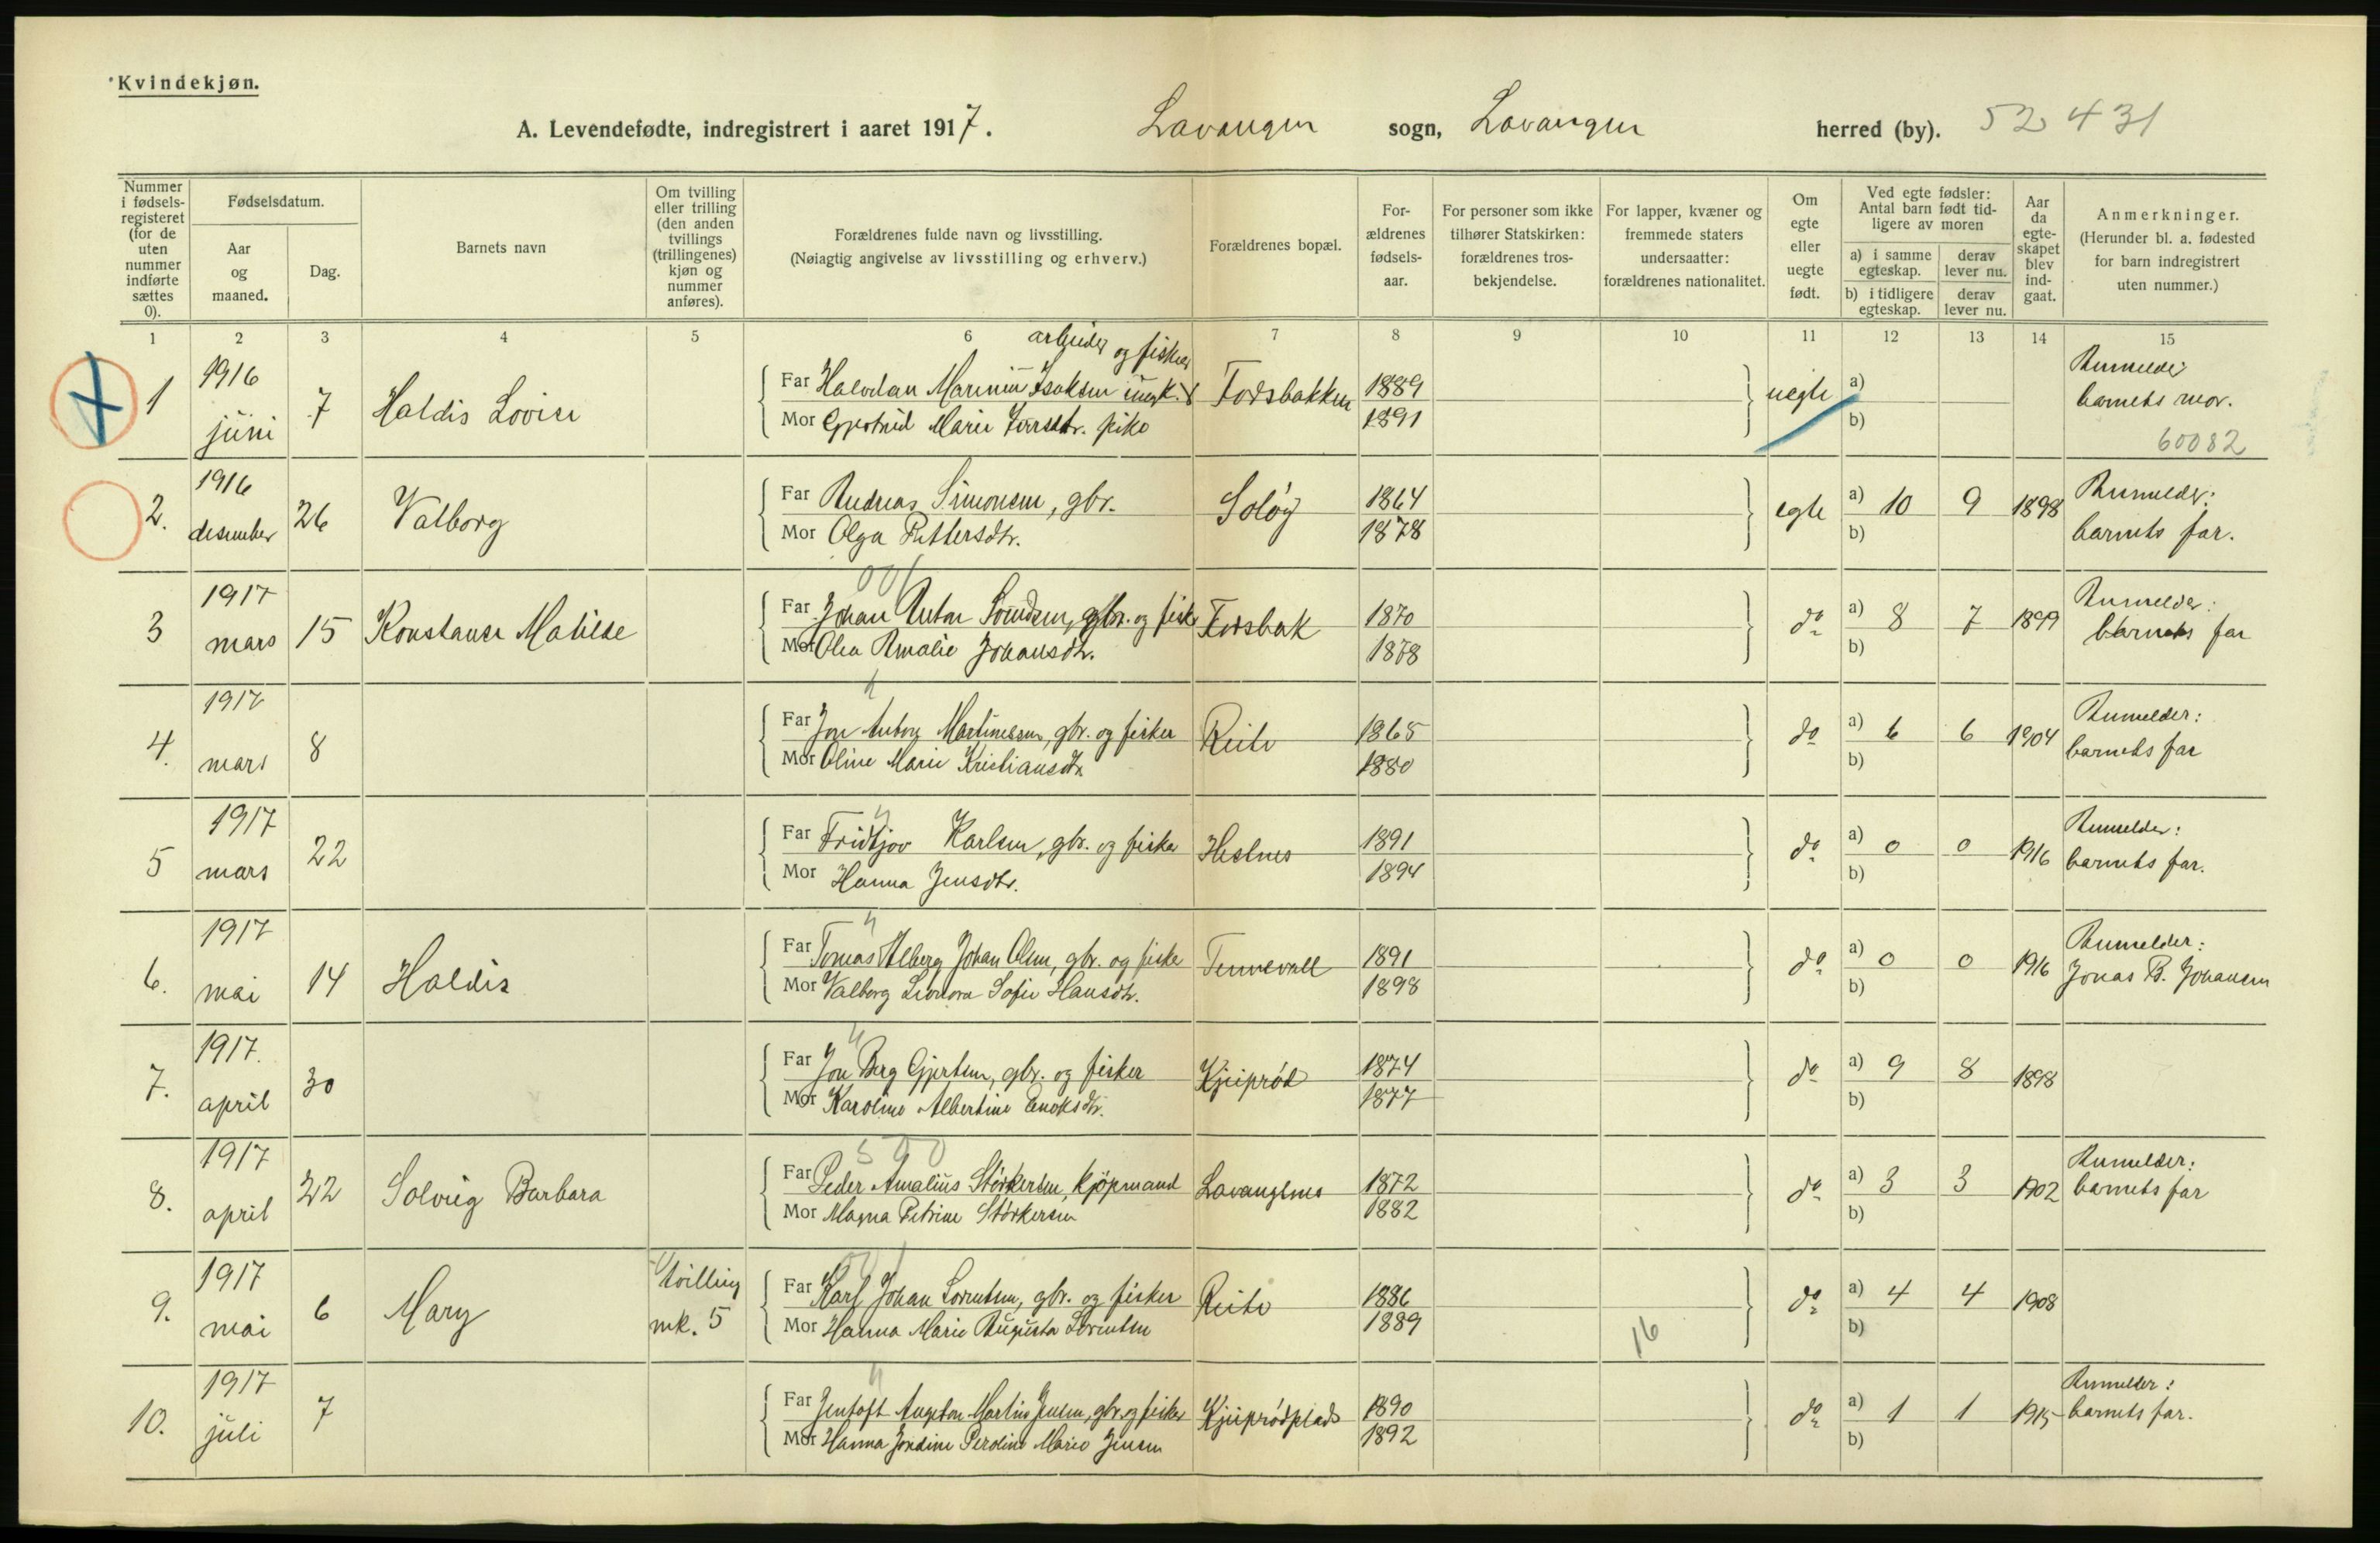 Kvindekjøn.
A. Levendefødte, indregistrert i aaret 1917. Lavangen sogn, Lavangen herred (by). 52 431
Nummer i fødsels-registeret (for de uten nummer indførte sættes 0).
Fødselsdatum.
Aar og maaned.
Dag.
Barnets navn
Om tvilling eller trilling (den anden tvillings (trillingenes) kjøn og nummer anføres).
Forældrenes fulde navn og livsstilling.
(Nøiagtig angivelse av livsstilling og erhverv.)
Forældrenes bopæl.
For-ældrenes fødsels-aar.
For personer som ikke tilhører Statskirken: forældrenes tros-bekjendelse.
For lapper, kvæner og fremmede staters undersaatter: forældrenes nationalitet.
Om egte eller uegte født.
Ved egte fødsler: Antal barn født tid-ligere av moren
a) i samme egteskap.
derav lever nu.
b) i tidligere egteskap.
derav lever nu.
Aar da egte-skapet blev ind-gaat.
Anmerkninger.
(Herunder bl. a. fødested for barn indregistrert uten nummer.)
1 2 3 4 5 6 7 8 9 10 11 12 13 14 15
arbeider og fisker
1 1916 juni 7 Haldis Lovise
Far Halvdan Marinius Isaksen ungk. Fossbakken 1889 uegte a) Anmelder
Mor Gjertrud Marie pike 1891 b) barnets mor.
60082
2. 1916 desember 26 Valborg
Far Andreas Simonsen, gbr. Soløy 1864 egte a) 10 9 1898 Anmelder:
Mor Olga Pettersdtr. 1878 b) barnets far.
001
3 1917 mars 15 Konstanse Matilde
Far Johan Anton gbr. og fisk Fosbak 1870 do a) 8 7 1899 Anmelder:
Mor Olea Amalie Johansdtr. 1878 b) barnets far
4. 1917 mars 8
Far Jon Anton Martinessen, gbr. og fisker Reite 1865 do a) 6 6 1904 Anmelder:
Mor Oline Marie Kristiansdtr. 1880 b) barnets far
5 1917 mars 22
Far Fridtjov Karlsen, gbr. og fisker Hesnes 1891 do a) 0 0 1916 Anmelder:
Mor Hanna Jensdtr. 1894 b) barnets far.
6. 1917 mai 14 Haldis
Far Tomas Alberg Johan Olsen, gbr. og fisker Tennevall 1891 do a) 0 0 1916 Anmelder:
Mor Valborg Leonora Sofie Hansdtr. 1898 b) Jonas B. Johansen
7. 1917. april 30
Far Jon Berg Gjertsen, gbr. og fisker Kjeiprød 1874 do a) 9 8 1898
Mor Karoline Albertine Enoksdtr. 1877 b)
500
8. 1917 april 22 Solveig Barbara
Far Peder Amalius Størkersen, kjøpmand Lavangsnes 1872 do a) 3 3 1902 Anmelder:
Mor Magna Petrine Størkersen 1882 b) barnets far
9. 1917 mai 6 Mary tvilling mk. 5
Far Karl Johan Lorentsen, gbr. og fisker Reite 1886 do a) 4 4 1908
Mor Hanna Marie Augusta Lorentsen 1889 16 b)
10. 1917 juli 7
Far Jentoft Angeton Martin Jensen, gbr. og fisker Kjeiprødplads 1890 do a) 1 1 1915 Anmelder:
Mor Hanna Jordine Peroline Marie Jensen 1892 b) barnets far.